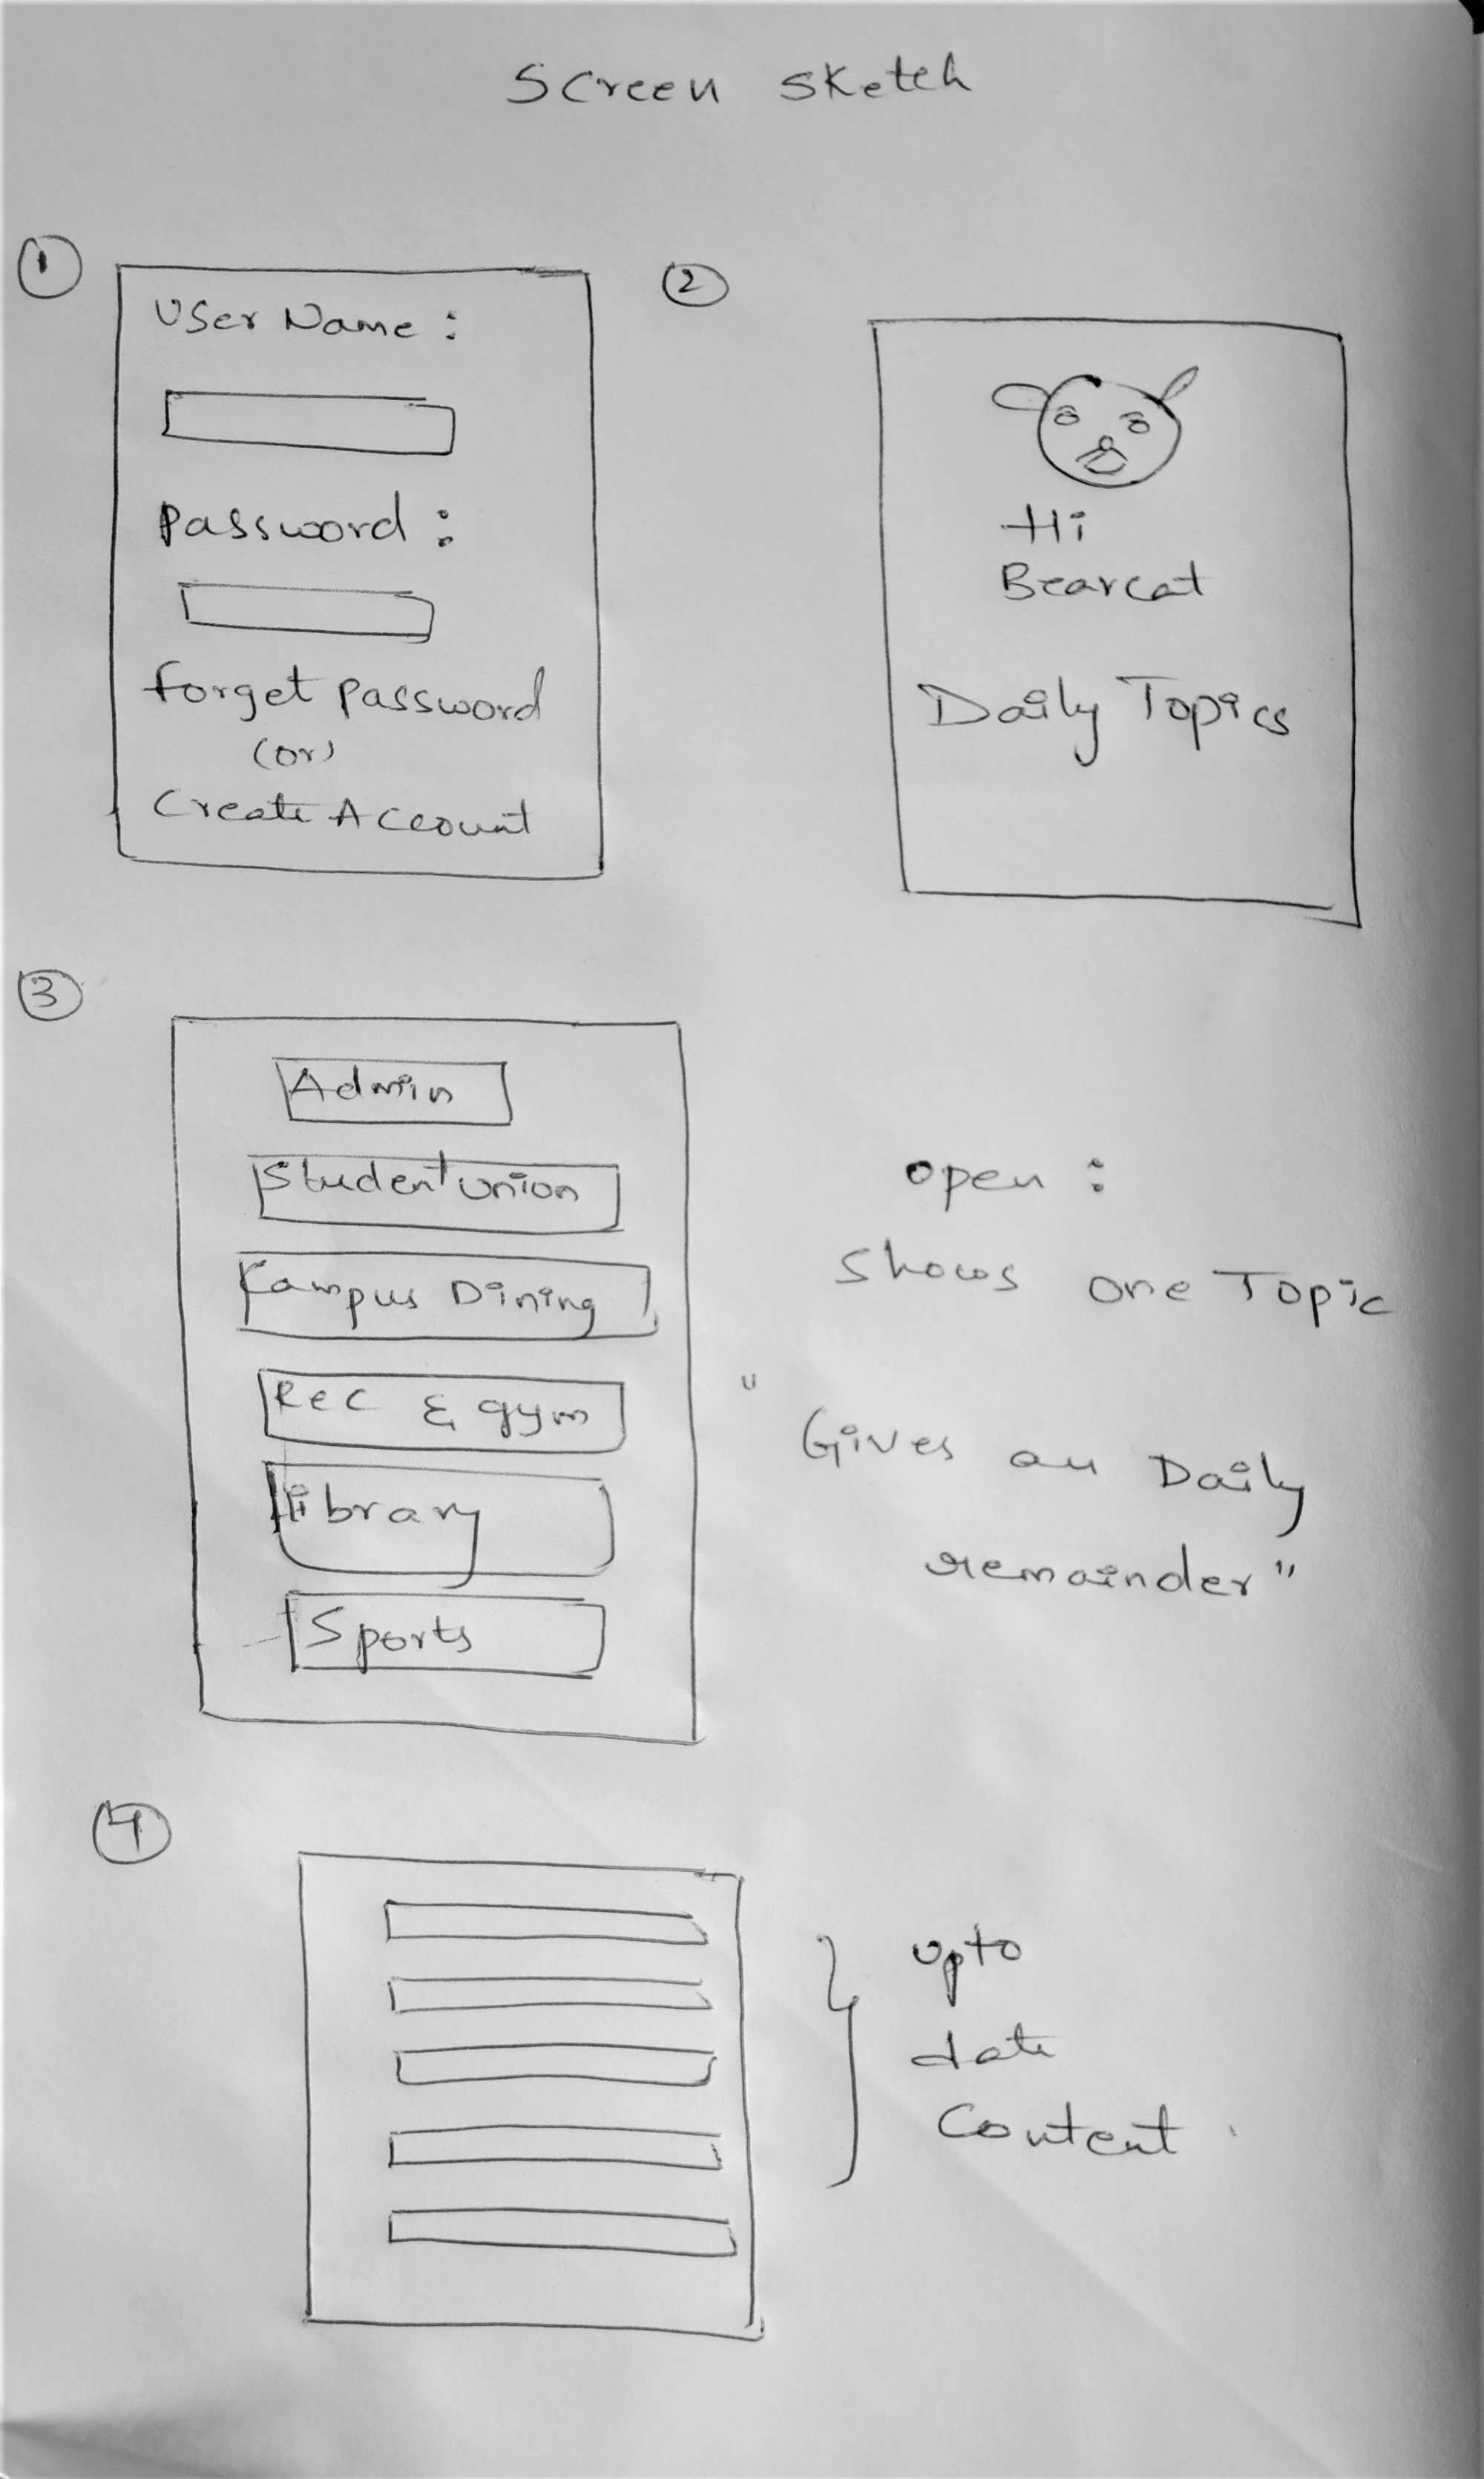 Screen Sketch
1
User Name :
Password :
forget password
(or)
Create Account
2
Hi
Bearcat
Daily Topics
3
Admin
Student union
Campus Dining
Rec & gym
library
Sports
open :
Shows one Topic
" Gives an Daily
remainder"
4
upto
date
Content